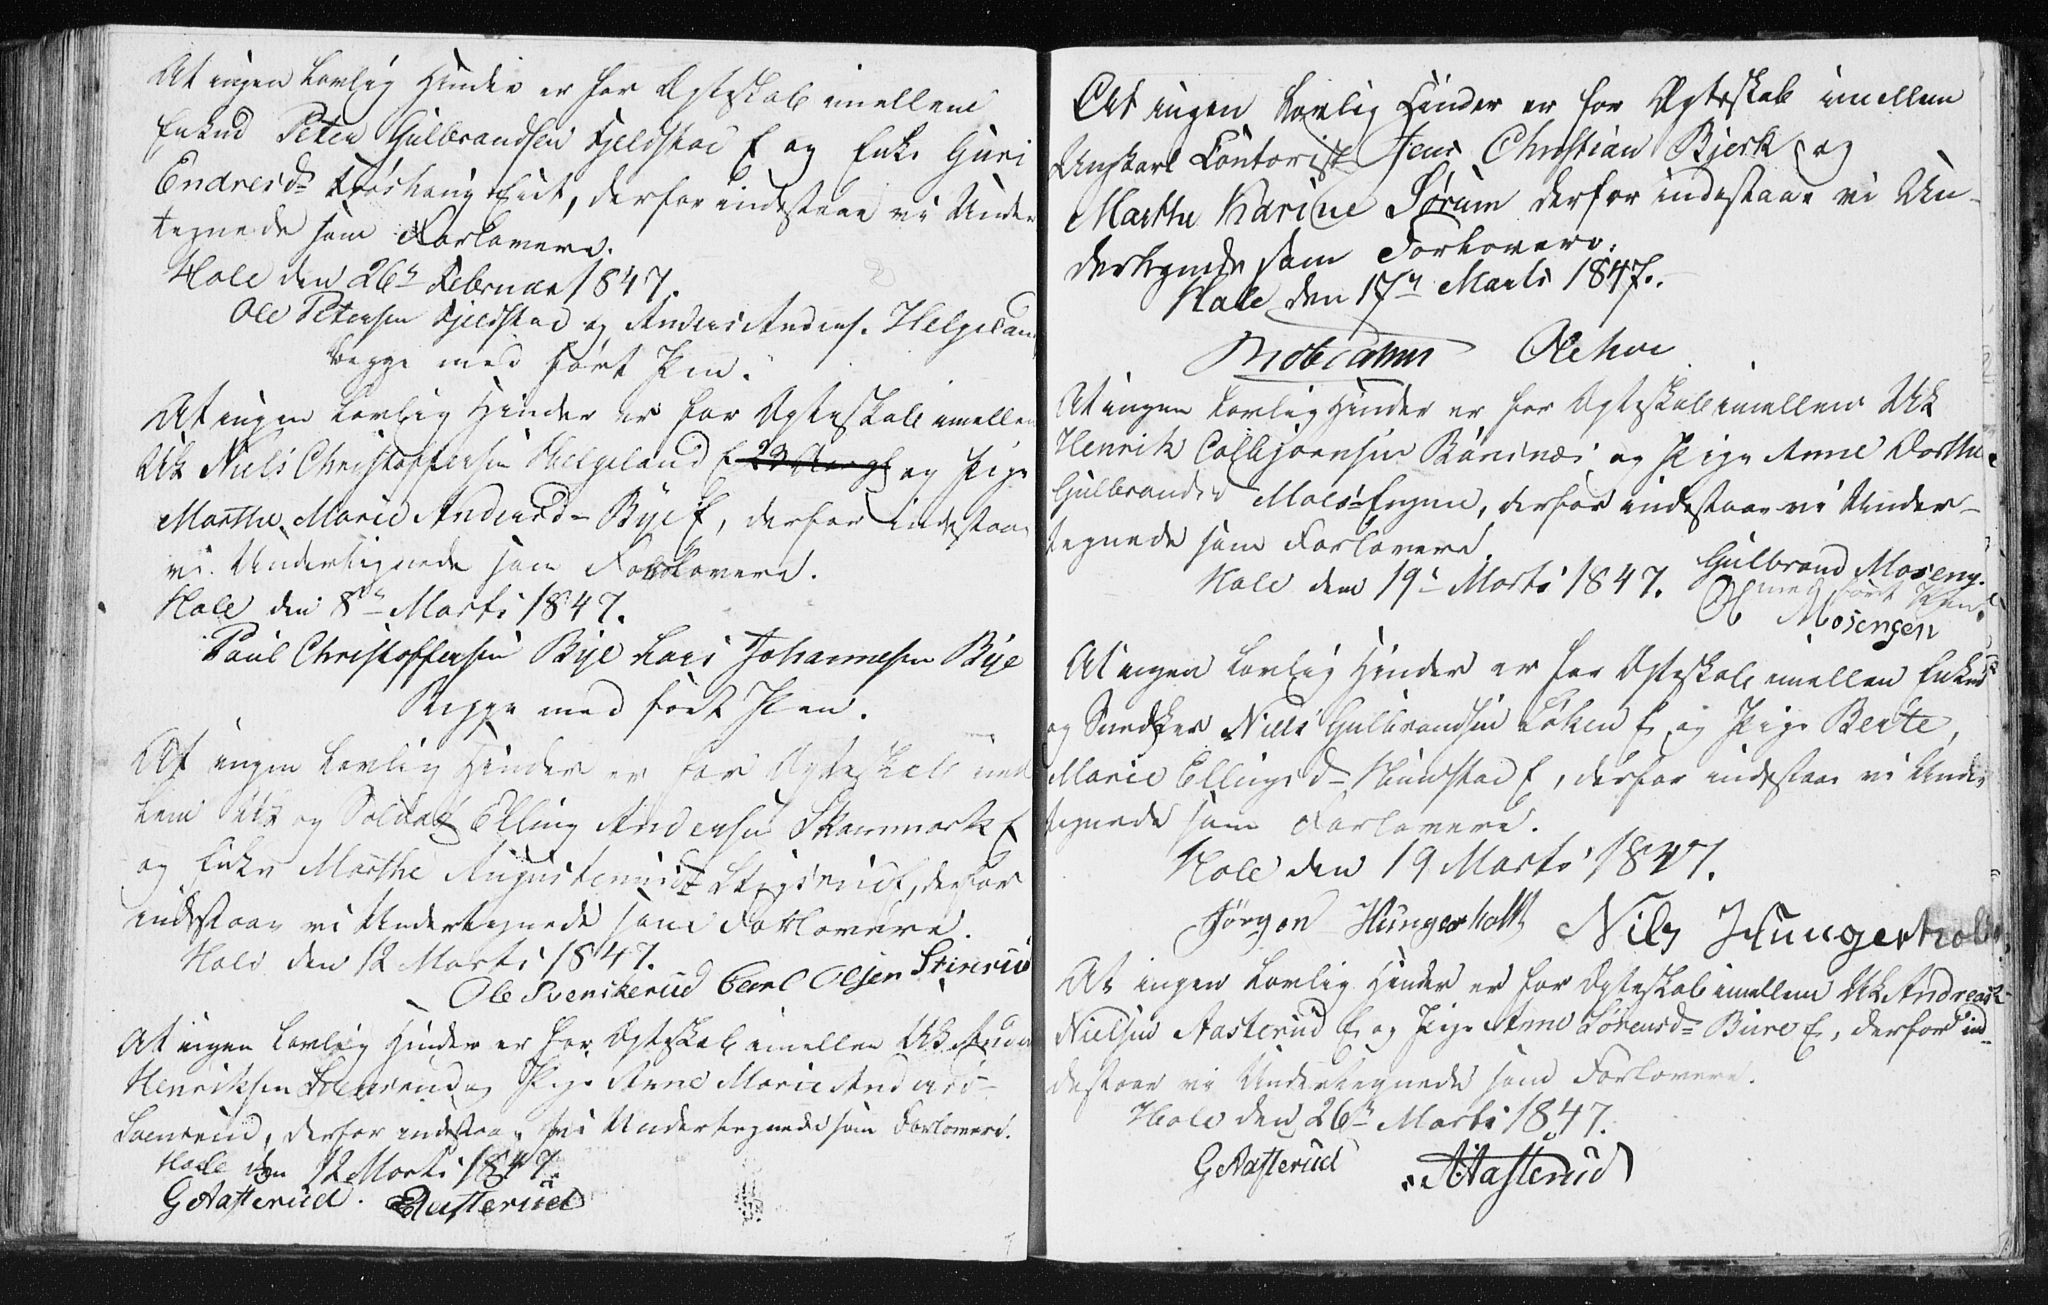 At ingen Lovlig Hinder er for Ægteskab imellem
Enkmd Peter Gulbrandsen Fjeldstad E og Enke Guri
Endresd Eidt, derfor indestaae vi Under
tegnede som Forlovere.
Hole den 26 Februar 1847.
Ole Petersen Fjeldstad og Anders Anders. Helgeland
begge med ført Pen.
At ingen Lovlig Hinder er for Ægteskab imellem
Uk Niels Christoffersen Helgeland E og Pige
Marthe Marie Andersd Bye E, derfor indestaae
vi Undertegnede som Forlovere.
Hole den 8 Marts 1847.
Paul Christoffersen Bye Lars Johannesen Bye
Begge med ført Pen.
At ingen Lovlig Hinder er for Ægteskab imel
lem Uk og Soldat Elling Andersen Skammark E
og Enke Marthe Augustinusd, derfor
indestaae vi Undertegnede som Forlovere.
Hole den 12 Marts 1847.
Ole Svenskerud Carl Olsen
At ingen Lovlig Hinder er for Ægteskab imellem Uk
Henriksen og Pige Anne Marie Andersd
derfor indestaae vi Undertegnede som Forlovere.
Hole den 12 Marts 1847.
G Aasterud. Aasterud
At ingen Lovlig Hinder er for Ægteskab imellem
Ungkarl Contorist Jens Christian Bjerk og
Marthe Karine Sørum derfor indestaae vi Un-
dertegnede som Forlovere.
Hole den 17 Marts 1847.
Ole Hoe
At ingen Lovlig Hinder er for Ægteskab imellem Uk
Henrik Colbjørnsen Bønsnæs og Pige Anne Dorthe
Gulbrandsd Moes Engen, derfor indestaae vi Under-
tegnede som Forlovere.
Hole den 19 Marts 1847. Gulbrand Moseng.
med ført Pen.
Mosengen
At ingen Lovlig Hinder er for Ægteskab imellem Enkmd
og Snedker Niels Gulbrandsen Løken E og Pige Berte
Marie Ellingsd E, derfor indestaae vi Under
tegnede som Forlovere.
Hole den 19 Marts 1847.
Jørgen Hungerholt Nils Hungerholt
At ingen Lovlig Hinder er for Ægteskab imellem Uk Andreas
Nielsen Aasterud E og Pige Anne Sørensd Bure E, derfor in-
destaae vi Undertegnede som Forlovere.
Hole den 26 Marts 1847.
G Aasterud A Aasterud